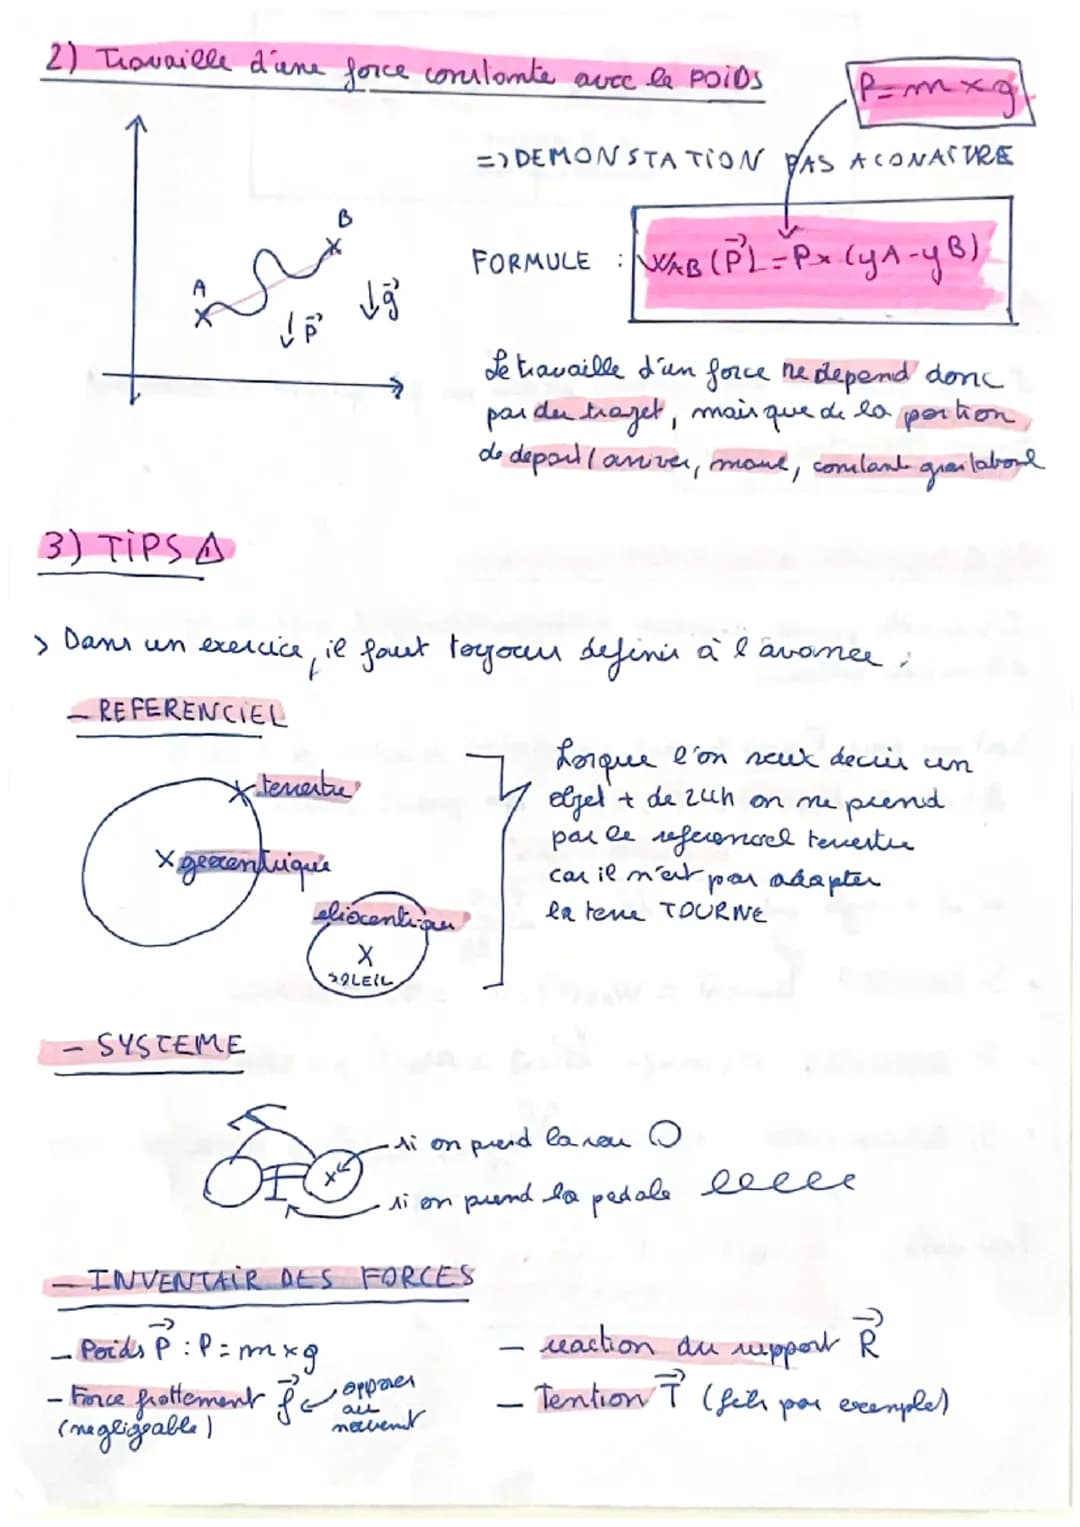 2) Travaille d'une force constante avec le POIDS
P=m×g
=> DEMONSTATION PAS A CONAITRE
B
A
P
g
FORMULE : WAB (P) = P× (yA-yB)
Le travaille d'un force ne depend donc
pas du trajet, mais que de la position
de depart / arriver, masse, constant
3) TIPS
> Dans un exercice, il faut definir à l'avance :
- REFERENCIEL
terrestre
geocentrique
SOLEIL
Lorque l'on veux decrir un
objet + de 24h on ne prend
pas le referenciel terrestre
car il n'est pas adapter
la terre TOURNE
- SYSTEME
si on prend la rou
si on prend la pedale
- INVENTAIR DES FORCES
- Poids P : P = m×g
- Force frottement f
opposer
au
(negligeable)
- reaction du support R
- Tention T (fils par exemple)